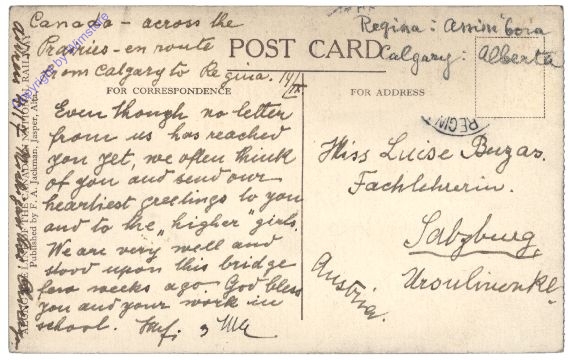 Canada - across the
Prairies - en route
from Calgary to Regina. 14/IX
Regina: Assiniboia
Calgary: Alberta
POST CARD
FOR CORRESPONDENCE
FOR ADDRESS
REGIN
Even though no letter
from us has reached
you yet, we often think
of you and send our
heartiest greetings to you
and to the „higher" girls.
We are very well and
stood upon this bridge
few weeks ago. God bless
you and your work in
school.
Miss Luise Buzas.
Fachlehrerin.
Salzburg,
Austria.
Published by F. A. Jackman, Jasper, Alta.
Copyright by